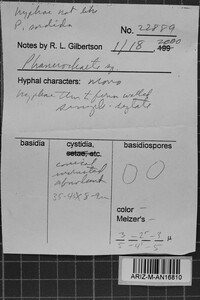 hyphae not like
P. sordida
No. 22889
Notes by R. L. Gilbertson 1/18 2000
199
Phanerochaete sp.
Hyphal characters: mono
hyphae thin & firm walled
simple-septate
basidia cystidia, basidiospores
setae, etc.
conical
encrusted
abundant
35-40 X 8-9 m
color –
Melzer's –
µ
ARIZ-M-AN16810